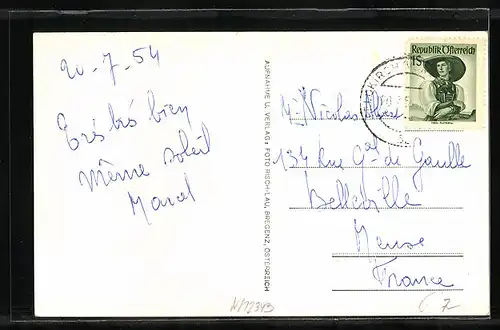 20-7-54
Très très bien
Même soleil
Marcel
AUFNAHME U. VERLAG: FOTO RISCH-LAU, BREGENZ, ÖSTERREICH
Republik Österreich
1S
Mr Nicolas
134 Rue Gal de Gaulle
Belleville
Meuse
France
7